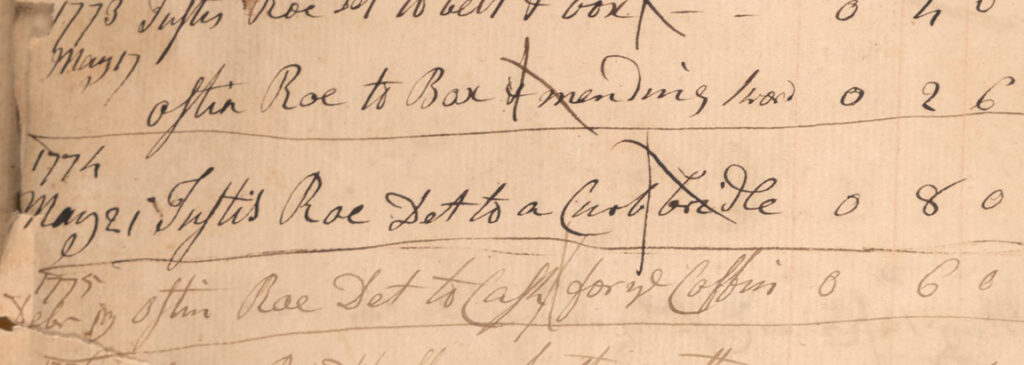 1773 Justis Roe Det to belt & box — — 0 4 0
May 17
ostin Roe to Box & mending sword 0 2 6
1774
May 21 Justis Roe Det to a Curb bridle 0 8 0
1775
Debr 19 ostin Roe Det to Cash for ye Coffin 0 6 0